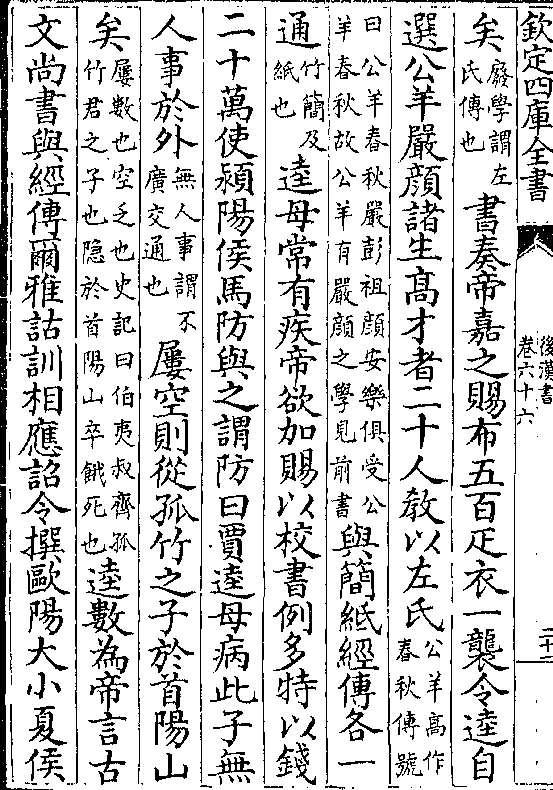 欽定四庫全書
後漢書
卷六十六
二十二
矣廢學謂左氏傳也書奏帝嘉之賜布五百疋衣一襲令逵自
選公羊嚴顔諸生髙才者二十人敎以左氏公羊髙作春秋傳號
曰公羊春秋嚴彭祖顔安樂俱受公羊春秋故公羊有嚴顔之學見前書與簡紙經傳各一
通竹簡及紙也逵母常有疾帝欲加賜以校書例多特以錢
二十萬使潁陽侯馬防與之謂防曰賈逵母病此子無
人事於外無人事謂不廣交通也屢空則從孤竹之子於首陽山
矣屢數也空乏也史記曰伯夷叔齊孤竹君之子也隐於首陽山卒餓死也逵數為帝言古
文尚書與經傳爾雅詁訓相應詔令撰歐陽大小夏侯